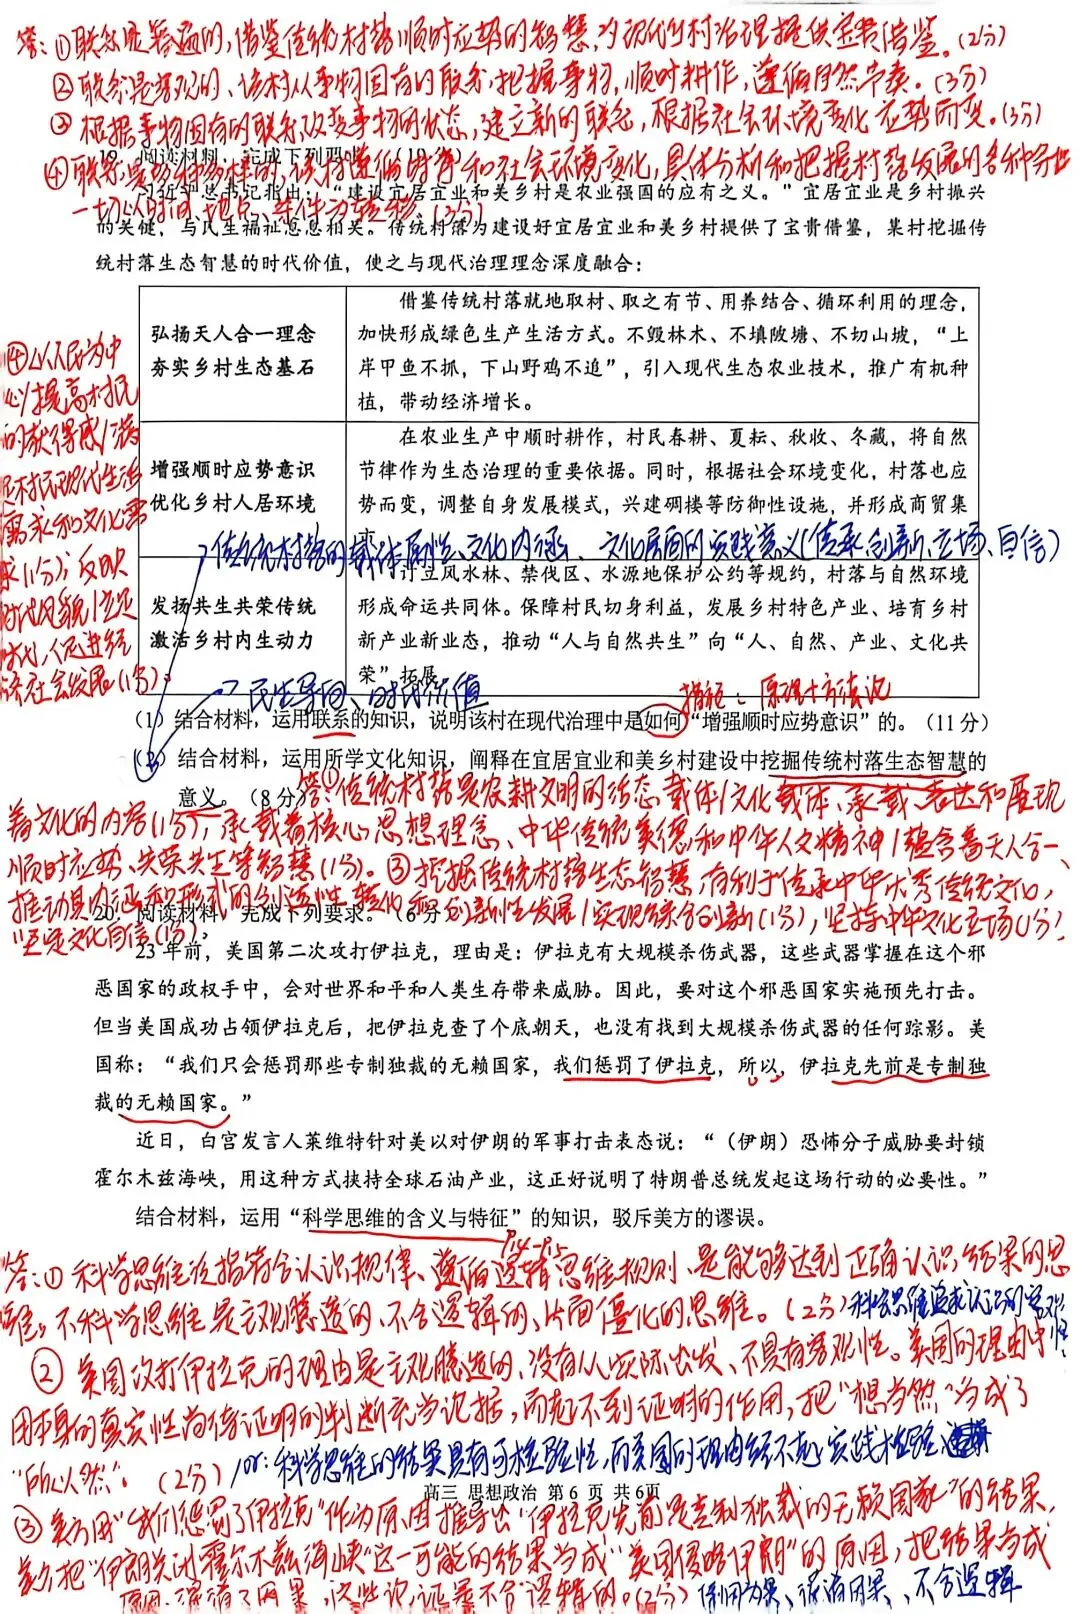 答:①联系是普遍的,借鉴传统村落顺时应势的智慧,为现代乡村治理提供宝贵借鉴。(2分)
②联系是客观的、该村从事物固有的联系把握事物,顺时耕作,遵循自然节奏。(3分)
③根据事物固有的联系,改变事物的状态,建立新的联系,根据社会环境变化应势而变。(3分)
19. 阅读材料,完成下列要求。(19 分)
④联系是多种多样的,该村遵循时节和社会环境变化,具体分析和把握村落发展的各种条件
习近平总书记指出:“建设宜居宜业和美乡村是农业强国的应有之义。”宜居宜业是乡村振兴
一切以时间、地点、条件为转移。(3分)
的关键,与民生福祉息息相关。传统村落为建设好宜居宜业和美乡村提供了宝贵借鉴,某村挖掘传
统村落生态智慧的时代价值,使之与现代治理理念深度融合:
弘扬天人合一理念
夯实乡村生态基石
借鉴传统村落就地取材、取之有节、用养结合、循环利用的理念,
加快形成绿色生产生活方式。不毁林木、不填陂塘、不切山坡,“上
岸甲鱼不抓,下山野鸡不追”,引入现代生态农业技术,推广有机种
植,带动经济增长。
④以人民为中
心/提高村民
的获得感/满
足村民现代生活
需求和文化需
求(1分);反映
时代风貌/立足
时代,促进经
济社会发展(1分)。
增强顺时应势意识
优化乡村人居环境
在农业生产中顺时耕作,村民春耕、夏耘、秋收、冬藏,将自然
节律作为生态治理的重要依据。同时,根据社会环境变化,村落也应
势而变,调整自身发展模式,兴建碉楼等防御性设施,并形成商贸集
市。
传统村落的载体属性、文化内涵、文化层面的实践意义(传承、创新、立场、自信)
发扬共生共荣传统
激活乡村内生动力
订立风水林、禁伐区、水源地保护公约等规约,村落与自然环境
形成命运共同体。保障村民切身利益,发展乡村特色产业、培育乡村
新产业新业态,推动“人与自然共生”向“人、自然、产业、文化共
荣”拓展。
民生导向、时代价值
措施:原理+方法论
(1)结合材料,运用联系的知识,说明该村在现代治理中是如何“增强顺时应势意识”的。(11 分)
(2)结合材料,运用所学文化知识,阐释在宜居宜业和美乡村建设中挖掘传统村落生态智慧的
意义。(8 分)
答①:传统村落是农耕文明的活态载体/文化载体、承载、表达和展现
着文化的内容(1分),承载着核心思想理念、中华传统美德和中华人文精神/蕴含着天人合一、
顺时应势、共荣共生等智慧(1分)。③挖掘传统村落生态智慧,有利于传承中华优秀传统文化,
推动其内涵和形式的创造性转化和创新性发展/实现综合创新(1分),坚持中华文化立场(1分),
坚定文化自信(1分),
20. 阅读材料,完成下列要求。(6 分)
23 年前,美国第二次攻打伊拉克,理由是:伊拉克有大规模杀伤武器,这些武器掌握在这个邪
恶国家的政权手中,会对世界和平和人类生存带来威胁。因此,要对这个邪恶国家实施预先打击。
但当美国成功占领伊拉克后,把伊拉克查了个底朝天,也没有找到大规模杀伤武器的任何踪影。美
国称:“我们只会惩罚那些专制独裁的无赖国家,我们惩罚了伊拉克,所以,伊拉克先前是专制独
裁的无赖国家。”
近日,白宫发言人莱维特针对美以对伊朗的军事打击表态说:“(伊朗)恐怖分子威胁要封锁
霍尔木兹海峡,用这种方式挟持全球石油产业,这正好说明了特朗普总统发起这场行动的必要性。”
结合材料,运用“科学思维的含义与特征”的知识,驳斥美方的谬误。
答:①科学思维泛指符合认识规律、遵循逻辑思维规则、是能够达到正确认识结果的思
维。不科学思维是主观臆造的、不合逻辑的、片面僵化的思维。(2分)科学思维追求认识的客观性
②美国攻打伊拉克的理由是主观臆造的、没有从实际出发、不具有客观性。美国的理由中
用本身的真实性尚待证明的判断充当论据,而起不到证明的作用,把“想当然”当成了
“所以然”。(2分)/or:科学思维的结果具有可检验性,而美国的理由经不起实践检验
高三 思想政治 第 6 页 共 6页
③美方用“我们惩罚了伊拉克”作为原因推导出“伊拉克先前是专制独裁的无赖国家”的结果,
美方把“伊朗关闭霍尔木兹海峡”这一可能的结果当成“美国侵略伊朗”的原因,把结果当成
原因,混淆了因果,这些论证是不合逻辑的。(2分)倒因为果、混淆因果、不合逻辑